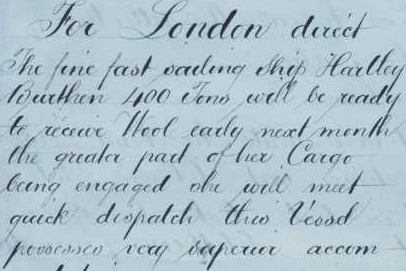 For London direct
The fine fast sailing Ship Hartley
Burthen 400 Tons will be ready
to receive Wool early next month
the greater part of her Cargo
being engaged she will meet
quick dispatch this Vessel
possesses very superior accom